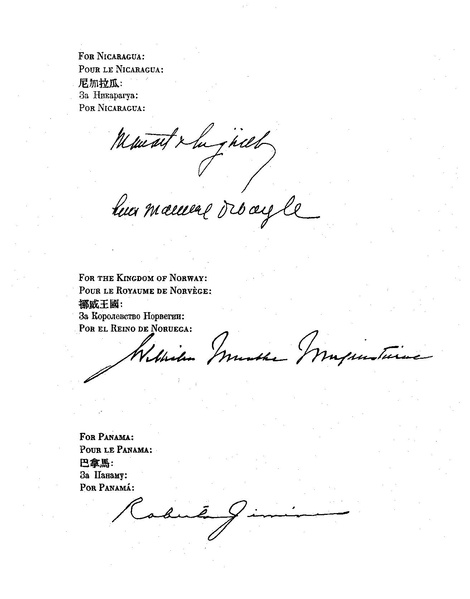 FOR NICARAGUA:
POUR LE NICARAGUA:
尼加拉瓜:
За Никарагуа:
POR NICARAGUA:
FOR THE KINGDOM OF NORWAY:
POUR LE ROYAUME DE NORVÈGE:
挪威王國:
За Королевство Норвегии:
POR EL REINO DE NORUEGA:
Wilhelm Munthe Morgenstierne
FOR PANAMA:
POUR LE PANAMA:
巴拿馬:
За Панаму:
POR PANAMÁ:
Roberto Jimine